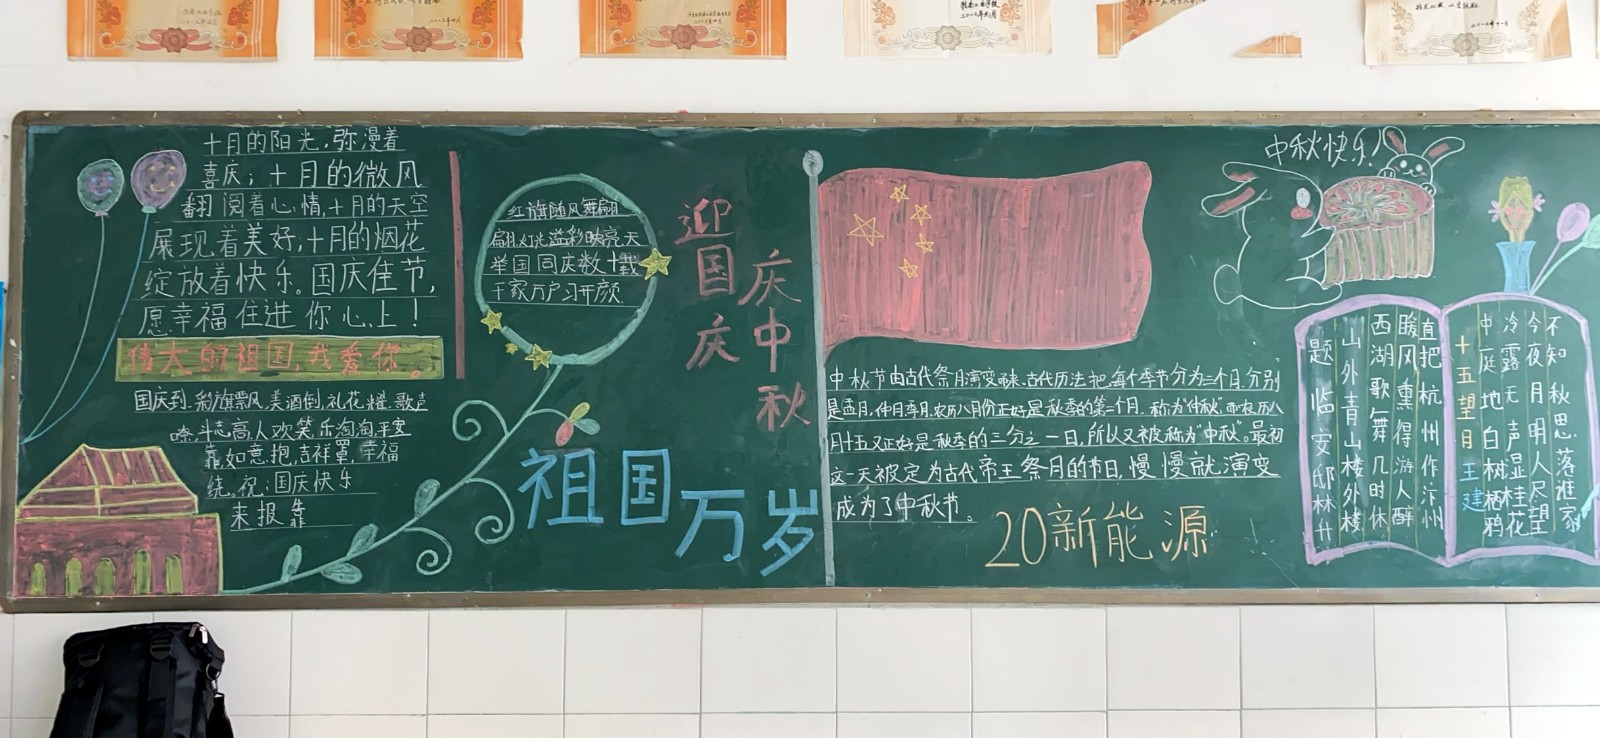 十月的阳光，弥漫着
喜庆；十月的微风
翻阅着心情，十月的天空
展现着美好，十月的烟花
绽放着快乐。国庆佳节，
愿幸福住进你心上！
伟大的祖国，我爱你。
国庆到，彩旗飘，美酒倒，礼花耀，歌声
嘹，斗志高，人欢笑，乐淘淘，平安
靠，如意抱，吉祥罩，幸福
绕。祝：国庆快乐
来报靠
红旗随风舞翩
翩，灯光溢彩映亮天
举国同庆数十载
千家万户习开颜
迎国庆
庆中秋
祖国万岁
中秋节由古代祭月演变来，古代历法把每个季节分为三个月，分别
是孟月，仲月季月，农历八月份正好是秋季的第二个月，称为“仲秋”，而农历八
月十五又正好是秋季的三分之一日，所以又被称为“中秋”。最初
这一天被定为古代帝王祭月的节日，慢慢就演变
成为了中秋节。
20新能源
中秋快乐！
题临安邸林升
山外青山楼外楼
西湖歌舞几时休
暖风熏得游人醉
直把杭州作汴州
十五望月王建
中庭地白树栖鸦
冷露无声湿桂花
今夜月明人尽望
不知秋思落谁家